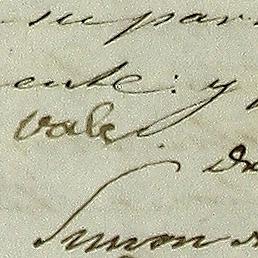 su par
ente: y
vale
de
Simon d